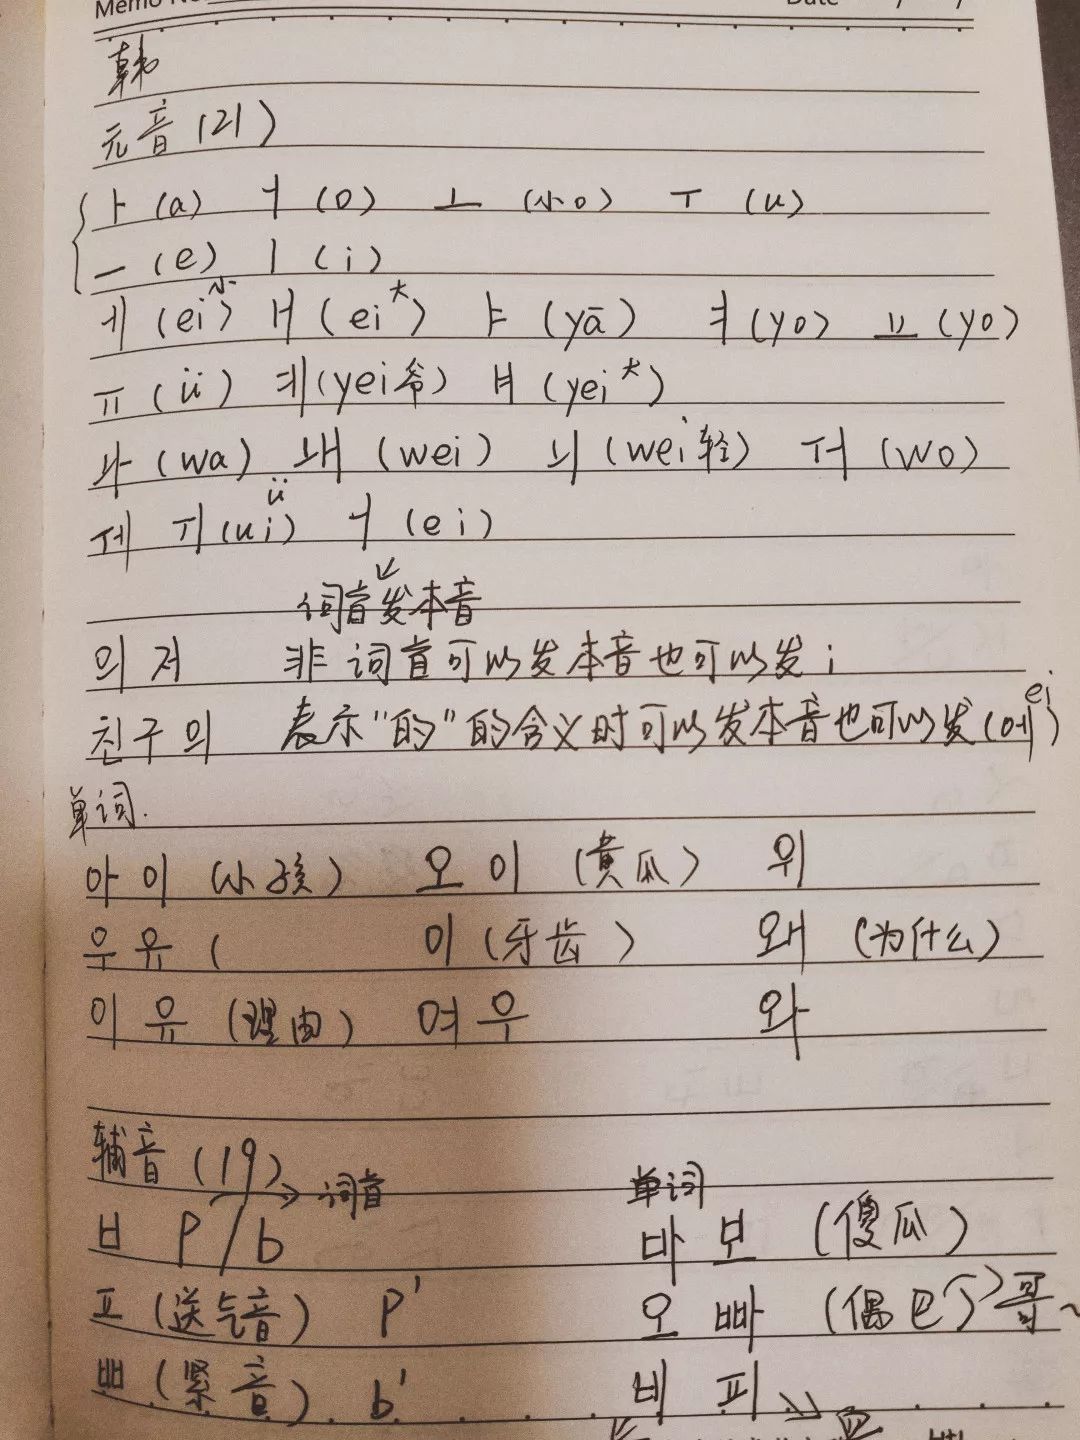 Memo No
Date / /
韩
元音(21)
ㅏ(a) ㅓ(o) ㅗ (小o) ㅜ (u)
ㅡ(e) ㅣ(i)
ㅔ(ei小) ㅐ(ei大) ㅑ(yā) ㅕ(yo) ㅛ(yo)
ㅠ(ü) ㅖ(yei爷) ㅒ(yei大)
ㅘ(wa) ㅙ(wei) ㅚ(wei轻) ㅝ(wo)
ㅞ ㅟ(ui) ü ㅓ(ei)
词首发本音
의 저 非词首可以发本音也可以发i
친구의 表示"的"的含义时可以发本音也可以发(에) ei
单词.
아이(小孩) 오이(黄瓜) 위
우유( 이(牙齿) 왜(为什么)
이유(理由) 여우 와
辅音(19) → 词首 单词
ㅂ p/b 바보(傻瓜)
ㅍ(送气音) p' 오빠(偶巴)哥~
ㅃ(紧音) b' 비피